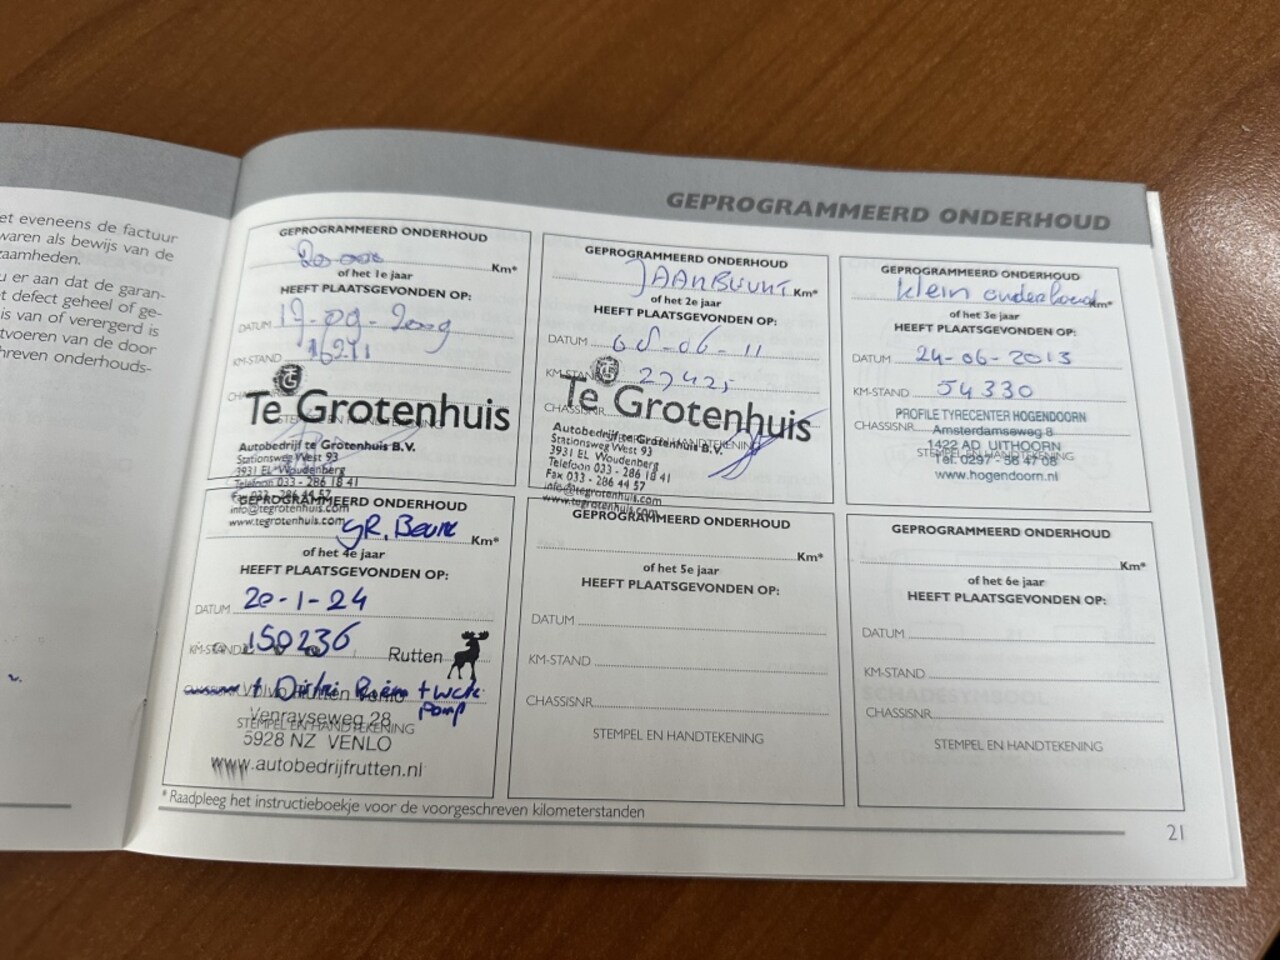 et eveneens de factuur
waren als bewijs van de
zaamheden.
u er aan dat de garan-
t defect geheel of ge-
is van of verergerd is
tvoeren van de door
hreven onderhouds-
GEPROGRAMMEERD ONDERHOUD
GEPROGRAMMEERD ONDERHOUD
20.000 Km*
of het 1e jaar
HEEFT PLAATSGEVONDEN OP:
DATUM 17-09-2009
KM-STAND 16211
Te Grotenhuis
STEMPEL EN HANDTEKENING
Autobedrijf te Grotenhuis B.V.
Stationsweg West 93
3931 EL Woudenberg
Telefoon 033 - 286 18 41
Fax 033 - 286 44 57
info@tegrotenhuis.com
www.tegrotenhuis.com
GEPROGRAMMEERD ONDERHOUD
JAARBEURT Km*
of het 2e jaar
HEEFT PLAATSGEVONDEN OP:
DATUM 08-06-11
KM-STAND
CHASSISNR.
Te Grotenhuis
STEMPEL EN HANDTEKENING
Autobedrijf te Grotenhuis B.V.
Stationsweg West 93
3931 EL Woudenberg
Telefoon 033 - 286 18 41
Fax 033 - 286 44 57
info@tegrotenhuis.com
www.tegrotenhuis.com
GEPROGRAMMEERD ONDERHOUD
klein onderhoud Km*
of het 3e jaar
HEEFT PLAATSGEVONDEN OP:
DATUM 24-06-2013
KM-STAND 54330
PROFILE TYRECENTER HOGENDOORN
CHASSISNR. Amsterdamseweg 8
1422 AD UITHOORN
STEMPEL EN HANDTEKENING
Tel. 0297 - 56 47 08
www.hogendoorn.nl
GEPROGRAMMEERD ONDERHOUD
GR. Beurt Km*
of het 4e jaar
HEEFT PLAATSGEVONDEN OP:
DATUM 20-1-24
KM-STAND 150236
Rutten
+ Distri Riem + water
pomp
Volvo Rutten Venlo
Venrayseweg 28
STEMPEL EN HANDTEKENING
5928 NZ VENLO
www.autobedrijfrutten.nl
GEPROGRAMMEERD ONDERHOUD
Km*
of het 5e jaar
HEEFT PLAATSGEVONDEN OP:
DATUM
KM-STAND
CHASSISNR.
STEMPEL EN HANDTEKENING
GEPROGRAMMEERD ONDERHOUD
Km*
of het 6e jaar
HEEFT PLAATSGEVONDEN OP:
DATUM
KM-STAND
CHASSISNR.
STEMPEL EN HANDTEKENING
* Raadpleeg het instructieboekje voor de voorgeschreven kilometerstanden
21